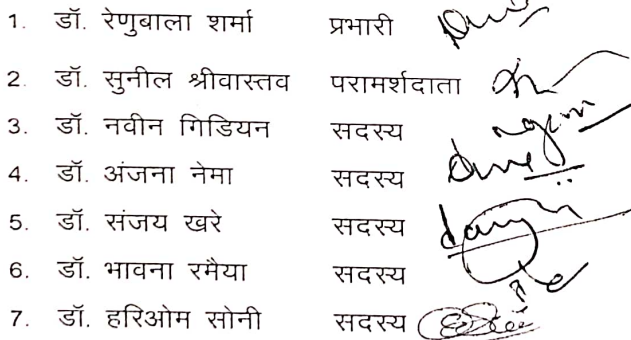 1. डॉ. रेणुबाला शर्मा प्रभारी
2. डॉ. सुनील श्रीवास्तव परामर्शदाता
3. डॉ. नवीन गिडियन सदस्य
4. डॉ. अंजना नेमा सदस्य
5. डॉ. संजय खरे सदस्य
6. डॉ. भावना रमैया सदस्य
7. डॉ. हरिओम सोनी सदस्य